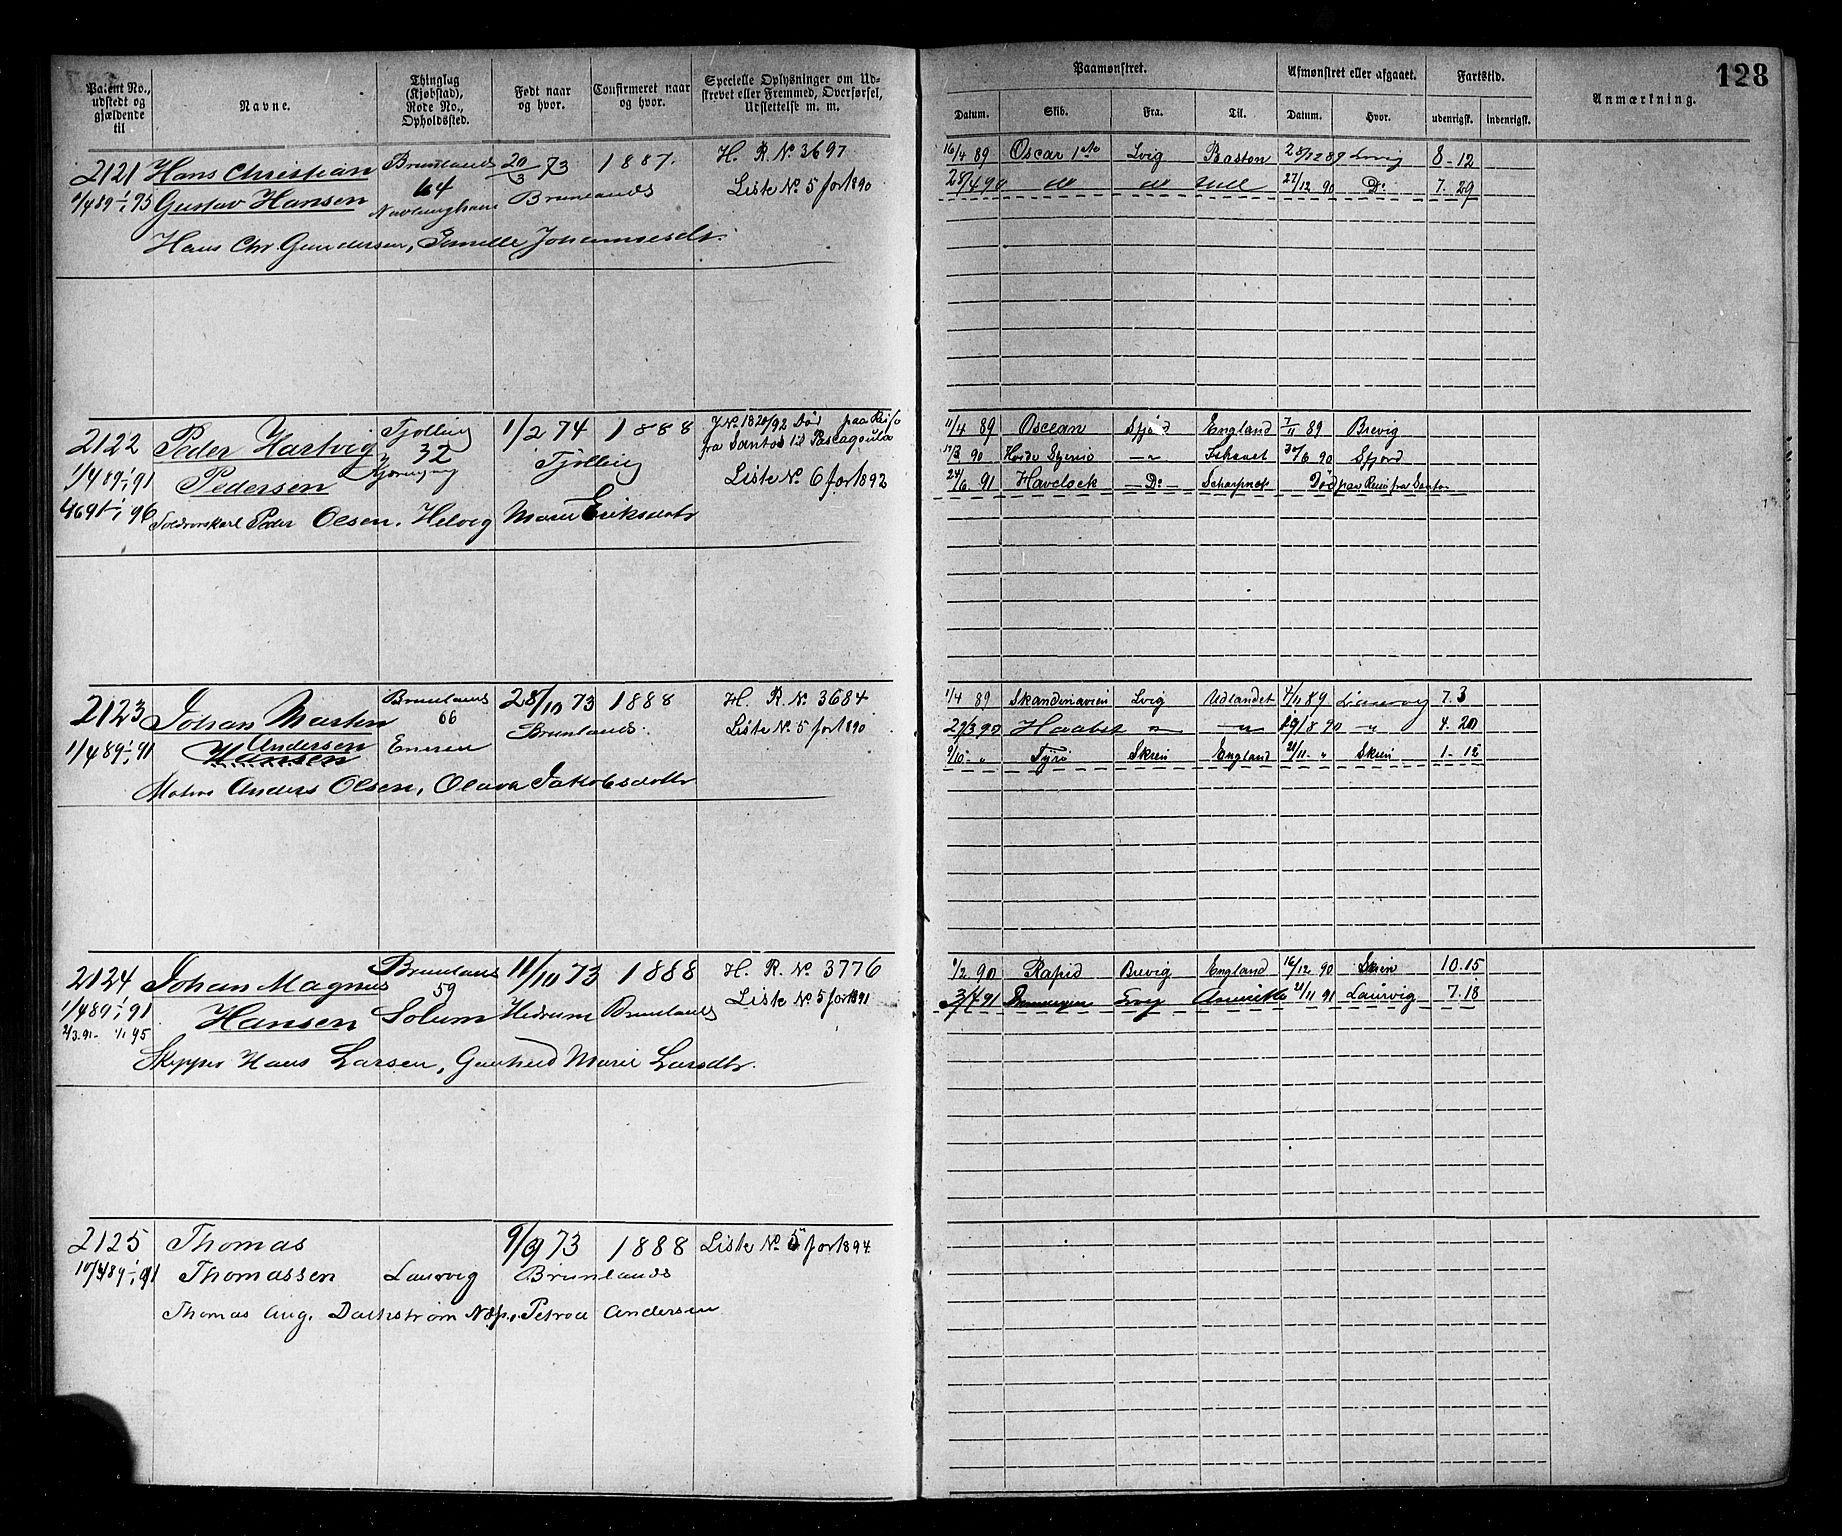 128
Patent No., udstedt og gjældende til
Navne.
Thinglag (Kjøbstad), Rode No., Opholdssted.
Født naar og hvor.
Confirmeret naar og hvor.
Specielle Oplysninger om Udskrevet eller Fremmed, Overførsel, Udslettelse m. m.
Paamønstret.
Afmønstret eller afgaaet.
Fartstid.
Anmærkning.
Datum. Skib. Fra. Til. Datum. Hvor. udenrigsk. indenrigsk.
2121 Hans Christian Brunlanes 20/3 73 1887. H. R. No 3697
1/4 89 1/1 95 Gustav Hansen 64 Brunlanes Liste No 5 for 1890
Hans Chr. Gundersen, Johannesdt.
16/4 89 Oscar 1ste Lvig Boston 28/12 89 Lvig 8-12
25/4 90 do do Hull 27/12 90 Do 7. 29
2122 Peder Hartvig Tjølling 32 1/2 74 1888 No 1820/92 Død paa Reise
fra Santos til Pascagoula
1/4 89 1/1 91 Pedersen Tjølling Liste No 6 for 1892
1/1 96 Peder Olsen, Helvig Marie Eriksdatr
11/4 89 Oscean Sfjord England 7/11 89 Brevig
90 6 90 Sfjord
24/6 91 Havelock Do Død paa Reise fra Santos
2123 Johan Martin Brunlanes 66 28/10 73 1888 H. R. No 3684
1/4 89 1/1 91 Hansen Andersen Brunlanes Liste No 5 for 1890
Anders Olsen, Olava Jakobsdatr
1/4 89 Skandinavien Lvig Udlandet 4/11 89 Laurvig 7. 3
29/3 90 Haabet " " 19/8 90 " 4. 20
9/10 " Skien England 21/11 " Skien 1-12
2124 Johan Magnus Brunlanes 59 11/10 73 1888 H. R. No 3776
1/4 89 1/1 91 Hansen Solum Hedrum Brunlanes Liste No 5 for 1891
2/3 91- 1/1 95
Skipper Hans Larsen, Marie Larsdtr.
1/2 90 Rapid Brevig England 16/12 90 Skien 10.15
3/4 91 Lvig 21/11 91 Laurvig 7.18
2125 Thomas 9/9 73 1888 Liste No 5 for 1894
1/1 91 Thomassen Laurvig Brunlanes
Thomas Aug. Petrea Andersen